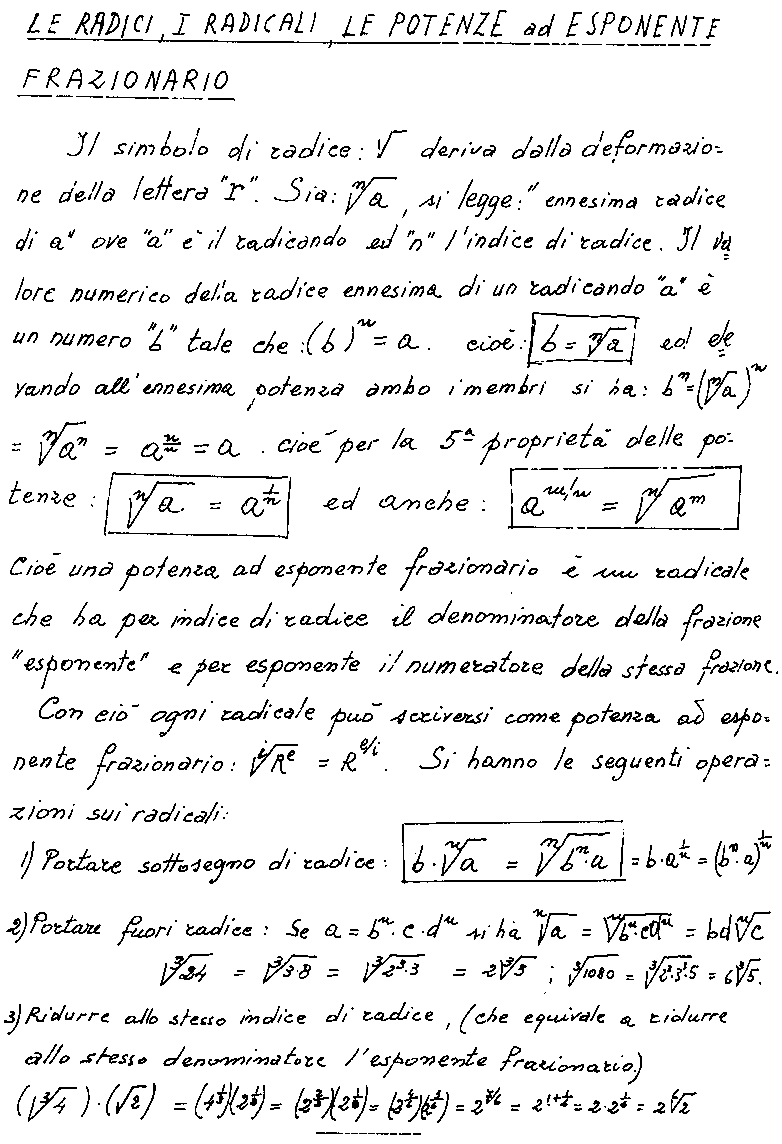 LE RADICI, I RADICALI, LE POTENZE ad ESPONENTE
FRAZIONARIO
Il simbolo di radice: √ deriva dalla deformazio=
ne della lettera "r". Sia: ⁿ√a, si legge: "ennesima radice
di a" ove "a" è il radicando ed "n" l'indice di radice. Il va
lore numerico della radice ennesima di un radicando "a" è
un numero "b" tale che: (b)ⁿ = a. cioè: b = ⁿ√a ed ele
vando all'ennesima potenza ambo i membri si ha: bⁿ = (ⁿ√a)ⁿ
= ⁿ√aⁿ = a^(n/n) = a. cioè per la 5ª proprietà delle po-
tenze: ⁿ√a = a^(1/n) ed anche: a^(m/n) = ⁿ√a^m
Cioè una potenza ad esponente frazionario è un radicale
che ha per indice di radice il denominatore della frazione
"esponente" e per esponente il numeratore della stessa frazione.
Con ciò ogni radicale può scriversi come potenza ad espo=
nente frazionario: ⁱ√Rᵉ = R^(e/i). Si hanno le seguenti opera=
zioni sui radicali:
1) Portare sottosegno di radice: b·ⁿ√a = ⁿ√bⁿ·a = b·a^(1/n) = (bⁿ·a)^(1/n)
2) Portare fuori radice: Se a = bⁿ·c·dⁿ si ha ⁿ√a = ⁿ√bⁿ·c·dⁿ = bd ⁿ√c
³√24 = ³√3·8 = ³√2³·3 = 2 ³√3 ; ³√1080 = ³√2³·3³·5 = 6 ³√5.
3) Ridurre allo stesso indice di radice, (che equivale a ridurre
allo stesso denominatore l'esponente frazionario)
(³√4)·(√2) = (4^(1/3))(2^(1/2)) = (2^(2/3))(2^(1/2)) = (2^(4/6))(2^(3/6)) = 2^(7/6) = 2^(1+1/6) = 2·2^(1/6) = 2 ⁶√2